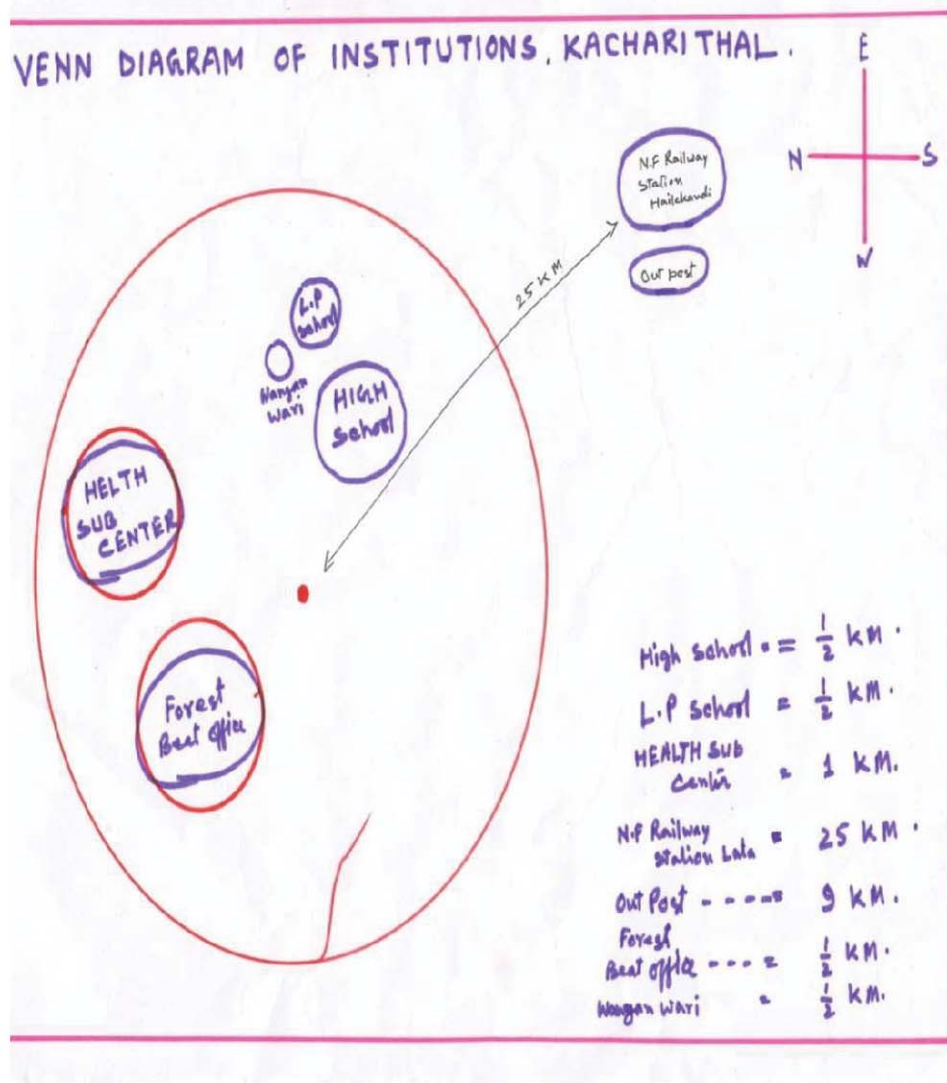 VENN DIAGRAM OF INSTITUTIONS, KACHARITHAL.
E
N
S
W
N.F Railway
Station
Hailakandi
Out post
25 KM
L.P
School
Wangan
Wari
HIGH
School
HELTH
SUB
CENTER
Forest
Beat office
High School = 1/2 KM.
L.P School = 1/2 KM.
HEALTH SUB
Center = 1 KM.
N.F Railway
Station Lala = 25 KM.
Out Post ----- = 9 KM.
Forest
Beat office --- = 1/2 KM.
Wangan Wari = 1/2 KM.